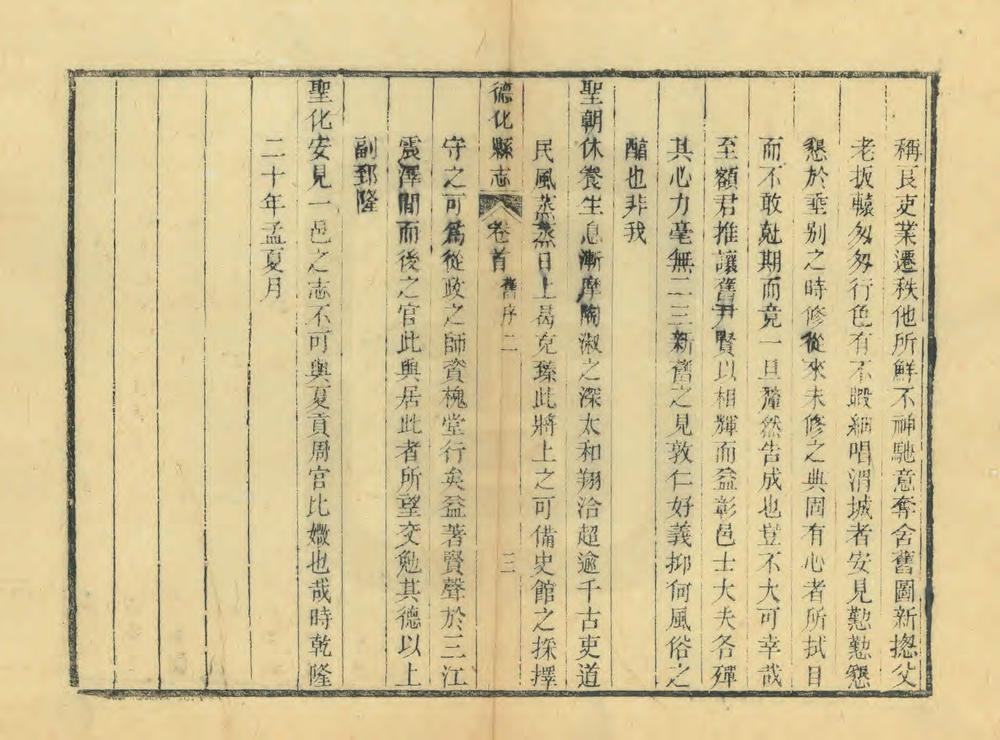 稱良吏業遷秩他所鮮不神馳意奪舍舊圖新揔父
老扳轅匆匆行色有不暇細唱渭城者安見懃懃懇
懇於埀别之時修從來未修之典固有心者所拭目
而不敢尅期而竟一旦犛然告成也豈不大可幸哉
至額君推讓舊尹賢以相輝而益彰邑士大夫各殫
其心力毫無二三新舊之見敦仁好義抑何風俗之
醕也非我
聖朝休養生息漸摩陶淑之深太和翔洽超逾千古吏道
民風蒸蒸日上曷克臻此將上之可備史館之採擇
德化縣志 卷首 舊序二 三
守之可爲從政之師資槐堂行矣益著賢聲於三江
震澤間而後之官此與居此者所望交勉其德以上
副郅隆
聖化安見一邑之志不可與夏貢周官比媺也哉時乾隆
二十年孟夏月